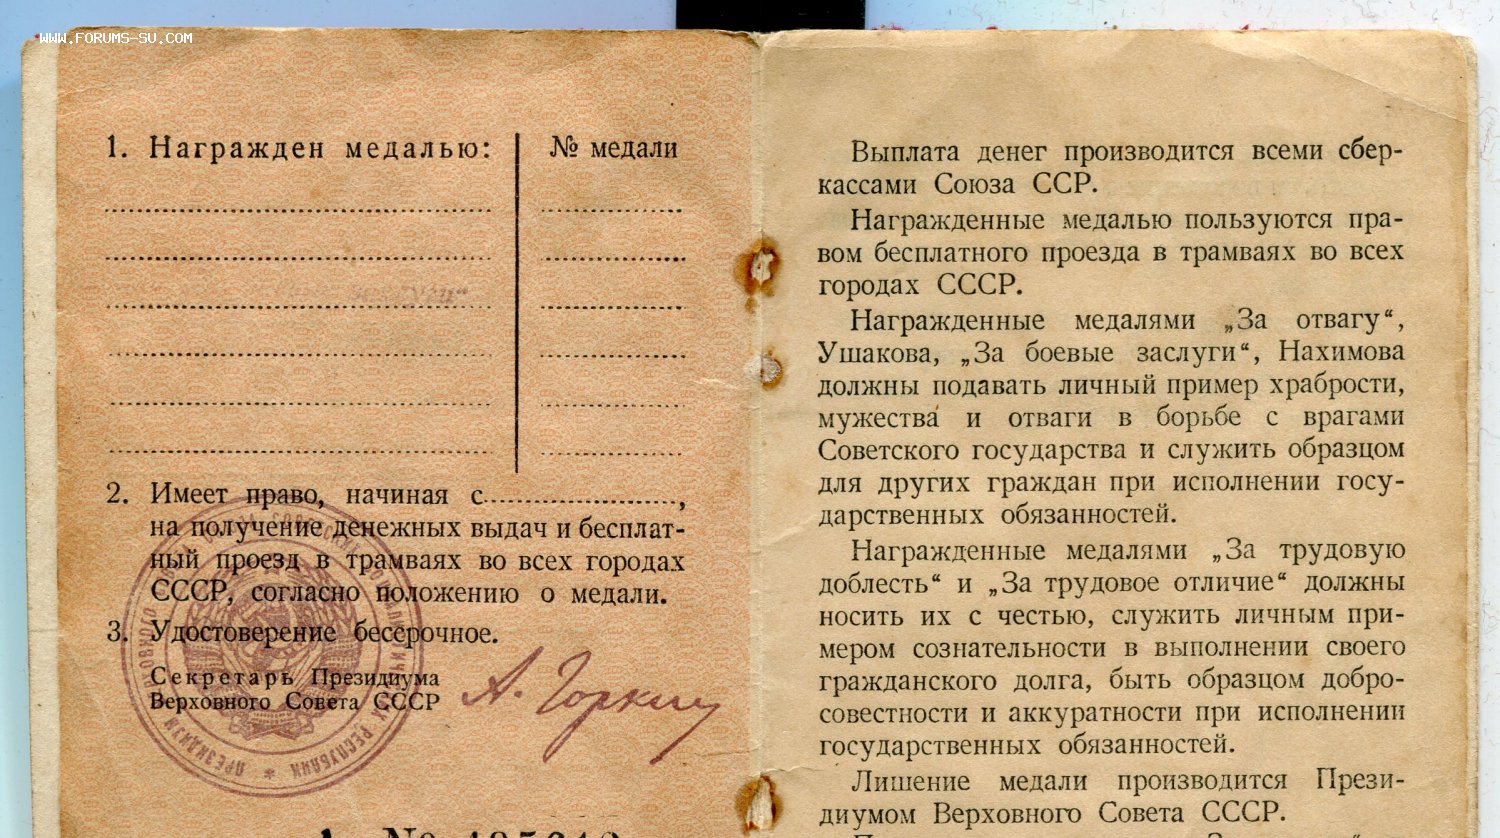 WWW.FORUMS-SU.COM
1. Награжден медалью:
№ медали
2. Имеет право, начиная с....................,
на получение денежных выдач и бесплат-
ный проезд в трамваях во всех городах
СССР, согласно положению о медали.
3. Удостоверение бессрочное.
Секретарь Президиума
Верховного Совета СССР
А. Горкин
Выплата денег производится всеми сбер-
кассами Союза ССР.
Награжденные медалью пользуются пра-
вом бесплатного проезда в трамваях во всех
городах СССР.
Награжденные медалями „За отвагу“,
Ушакова, „За боевые заслуги“, Нахимова
должны подавать личный пример храбрости,
мужества и отваги в борьбе с врагами
Советского государства и служить образцом
для других граждан при исполнении госу-
дарственных обязанностей.
Награжденные медалями „За трудовую
доблесть“ и „За трудовое отличие“ должны
носить их с честью, служить личным при-
мером сознательности в выполнении своего
гражданского долга, быть образцом добро-
совестности и аккуратности при исполнении
государственных обязанностей.
Лишение медали производится Прези-
диумом Верховного Совета СССР.